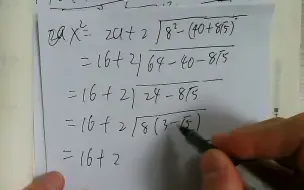 x² = 2a + 2√(8² - (40+8√5))
= 16 + 2√(64 - 40 - 8√5)
= 16 + 2√(24 - 8√5)
= 16 + 2√(8(3-√5))
= 16 + 2